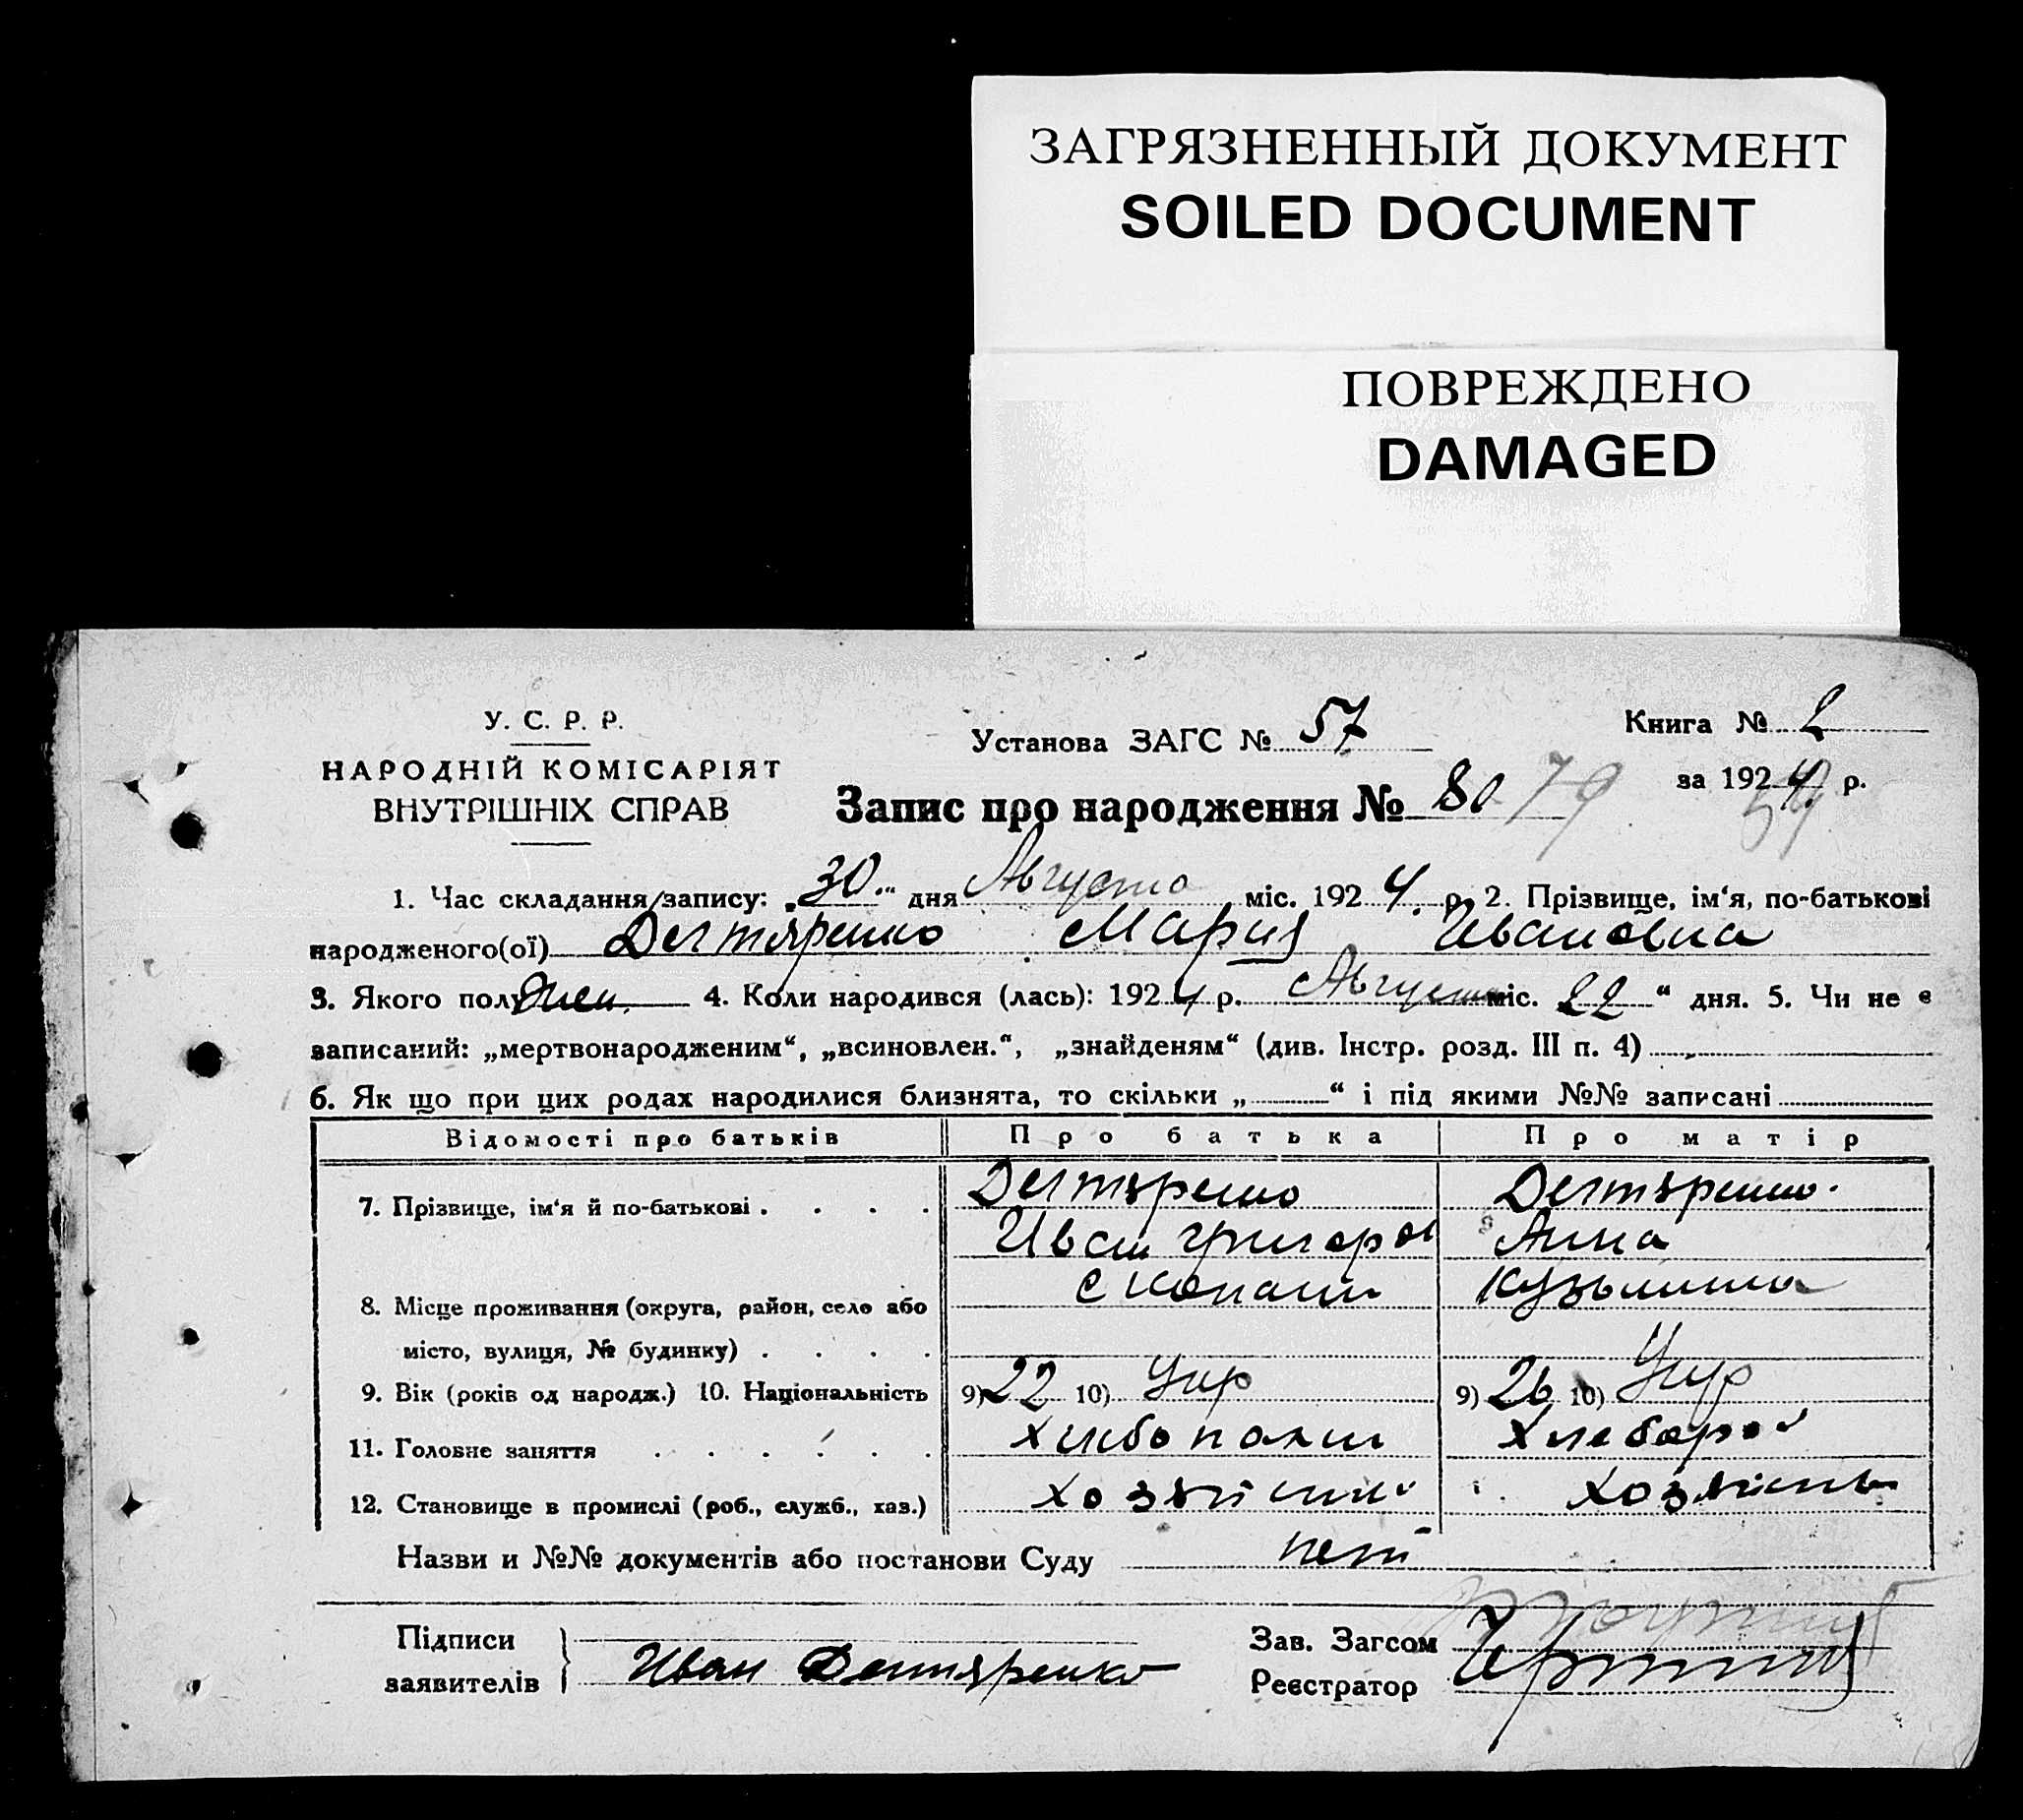 ЗАГРЯЗНЕННЫЙ ДОКУМЕНТ
SOILED DOCUMENT
ПОВРЕЖДЕНО
DAMAGED
У. С. Р. Р.
НАРОДНІЙ КОМІСАРІЯТ
ВНУТРІШНІХ СПРАВ
Установа ЗАГС № 57
Книга № 2
за 1924 р.
Запис про народження № 80 79
59
1. Час складання запису: „30“ дня Августа міс. 1924. р. 2. Прізвище, ім‘я, по-батькові
народженого(ої) Дегтяренко Мария Ивановна
3. Якого полу Жен. 4. Коли народився (лась): 1924 р. Августа міс. 22 “ дня. 5. Чи не є
записаний: „мертвонародженим“, „всиновлен.“, „знайденям“ (див. Інстр. розд. III п. 4)
6. Як що при цих родах народилися близнята, то скільки „ “ і під якими №№ записані
Відомості про батьків Про батька Про матір
7. Прізвище, ім‘я й по-батькові . . . . Дегтяренко Дегтяренко.
Иван Григоров Анна
8. Місце проживання (округа, район, село або с Копани Кузьминна
місто, вулиця, № будинку) . . . .
9. Вік (років од народж.) 10. Національність 9) 22 10) Укр 9) 26 10) Укр
11. Головне заняття . . . . . . Хлебопашец Хлебороб
12. Становище в промислі (роб., служб., хаз.) хозяин хозяин
Назви и №№ документів або постанови Суду нет
Підписи
заявителів } Иван Дегтяренко
Зав. Загсом
Реєстратор